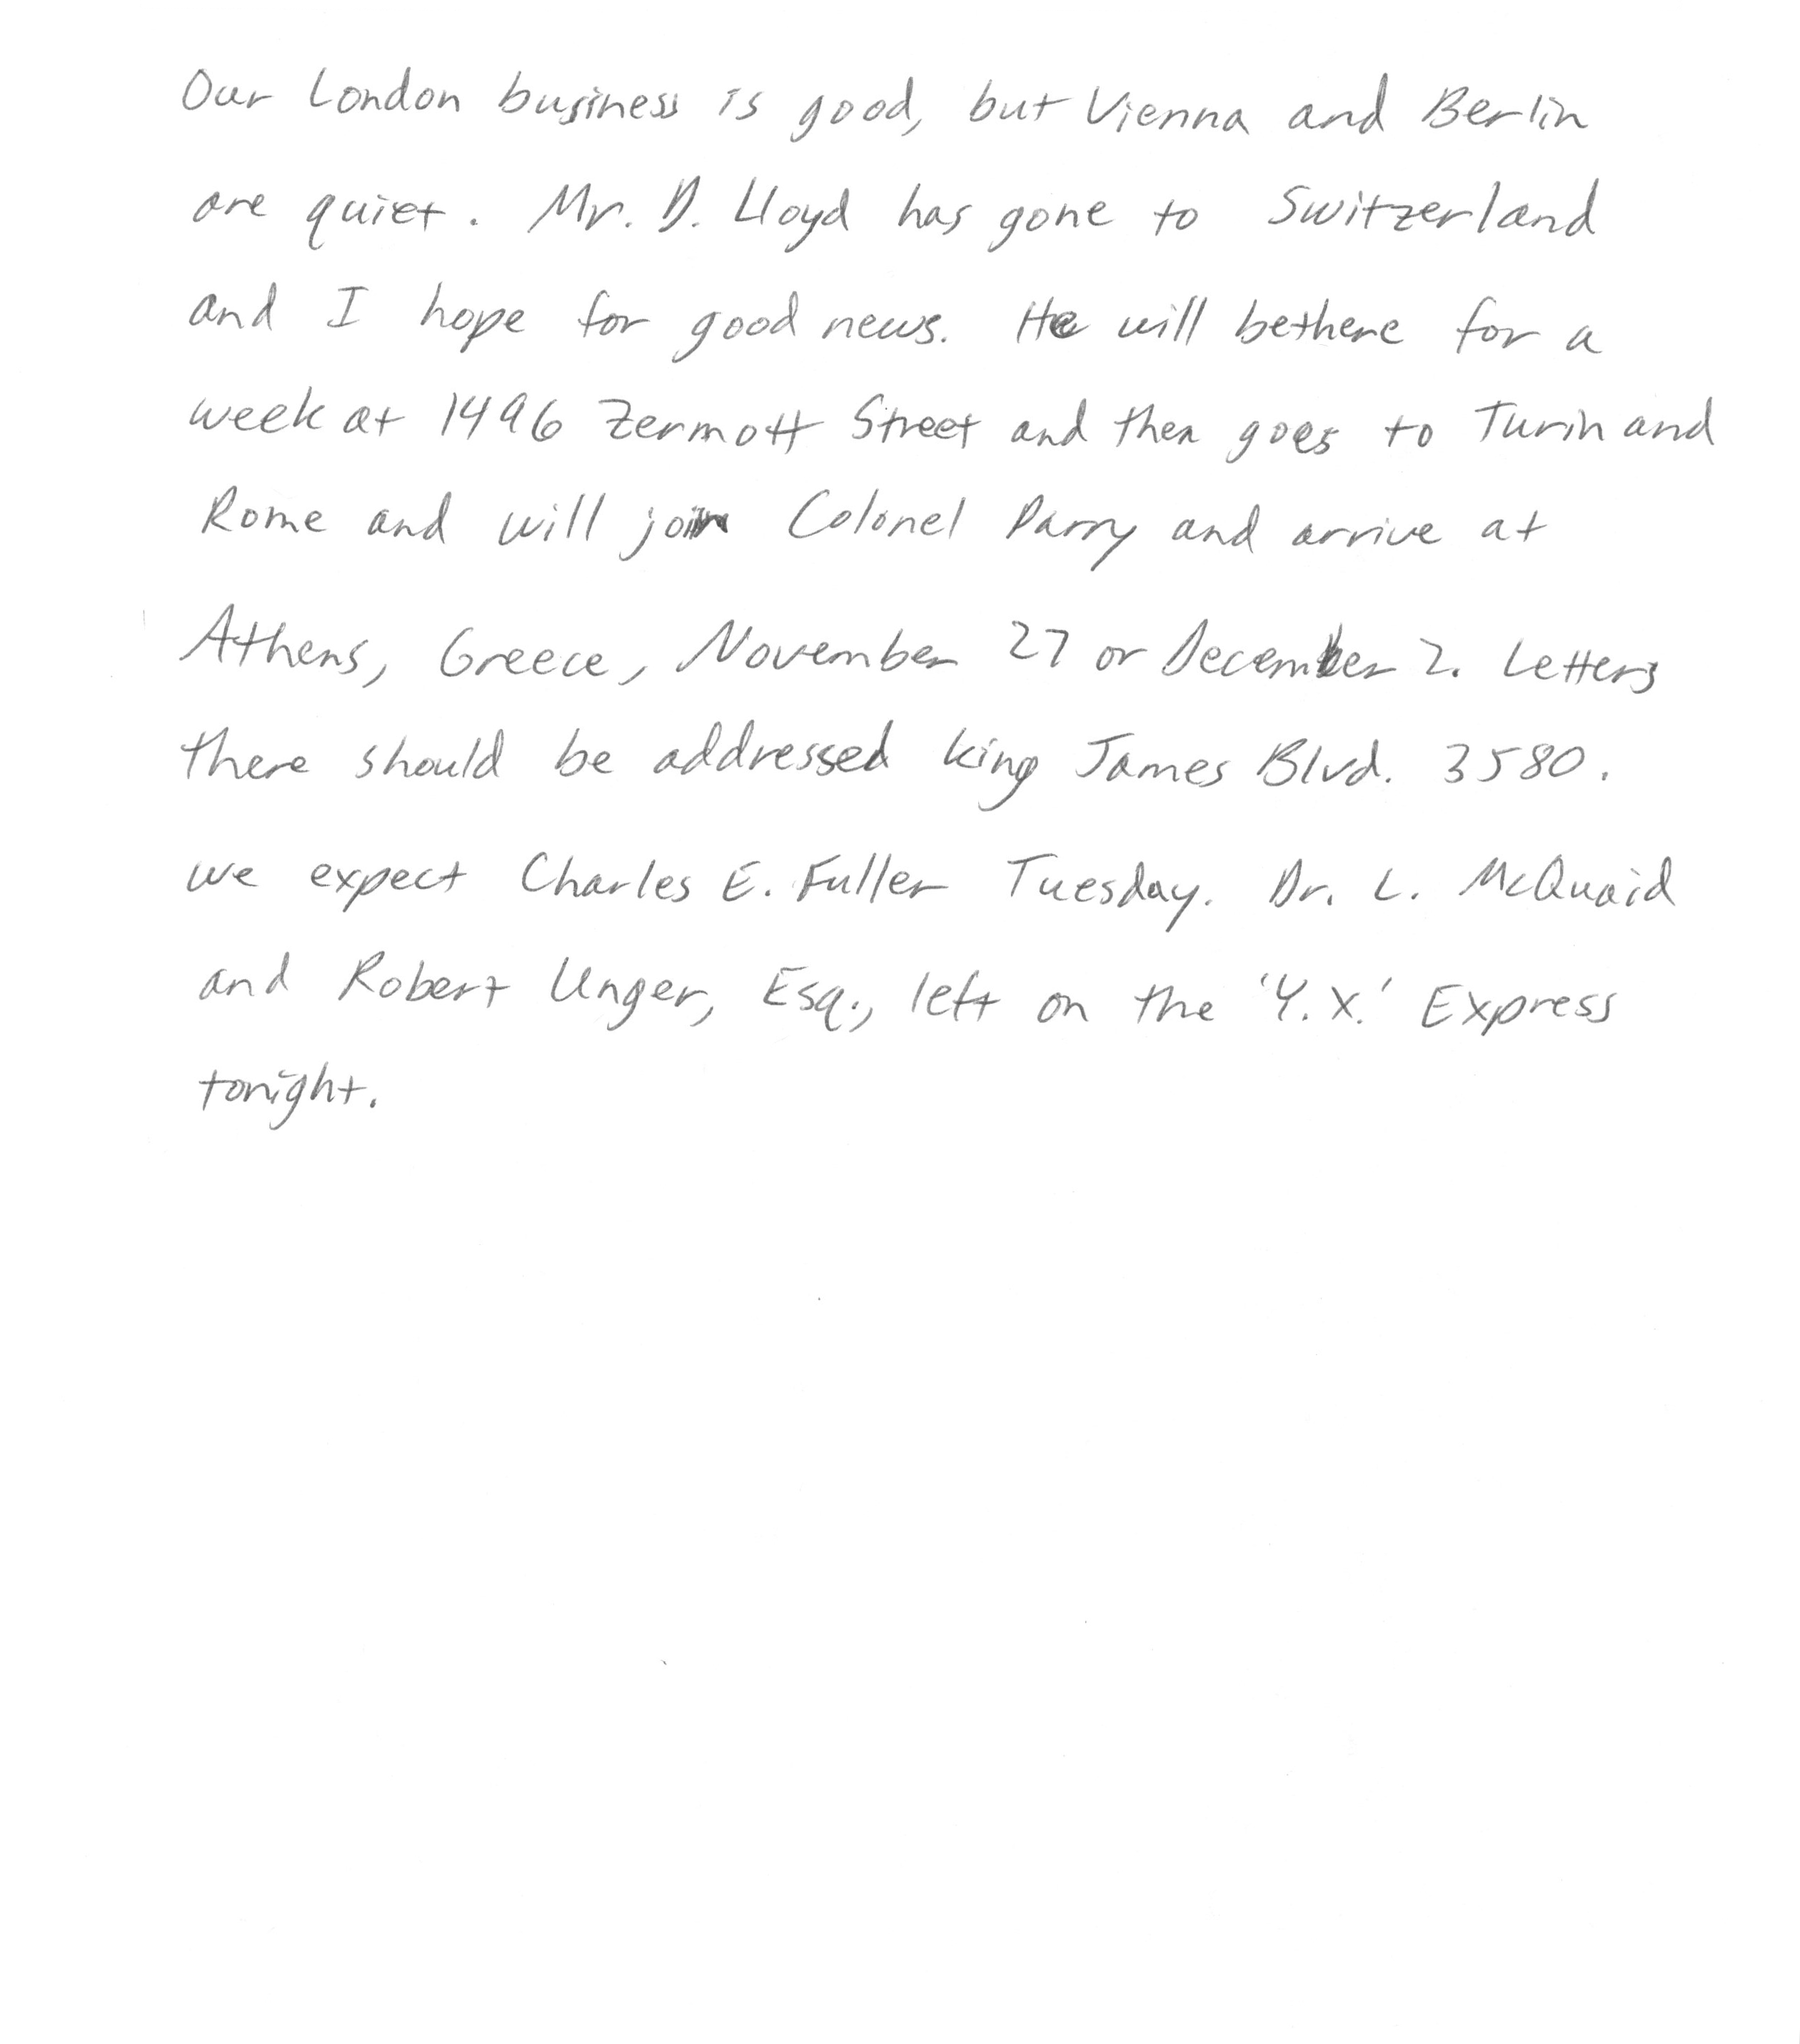 Our London business is good, but Vienna and Berlin
are quiet. Mr. D. Lloyd has gone to Switzerland
and I hope for good news. He will bethere for a
week at 1496 Zermott Street and then goes to Turin and
Rome and will join Colonel Parry and arrive at
Athens, Greece, November 27 or December 2. Letters
there should be addressed King James Blvd. 3580.
We expect Charles E. Fuller Tuesday. Dr. L. McQuaid
and Robert Unger, Esq., left on the 'Y.X.' Express
tonight.